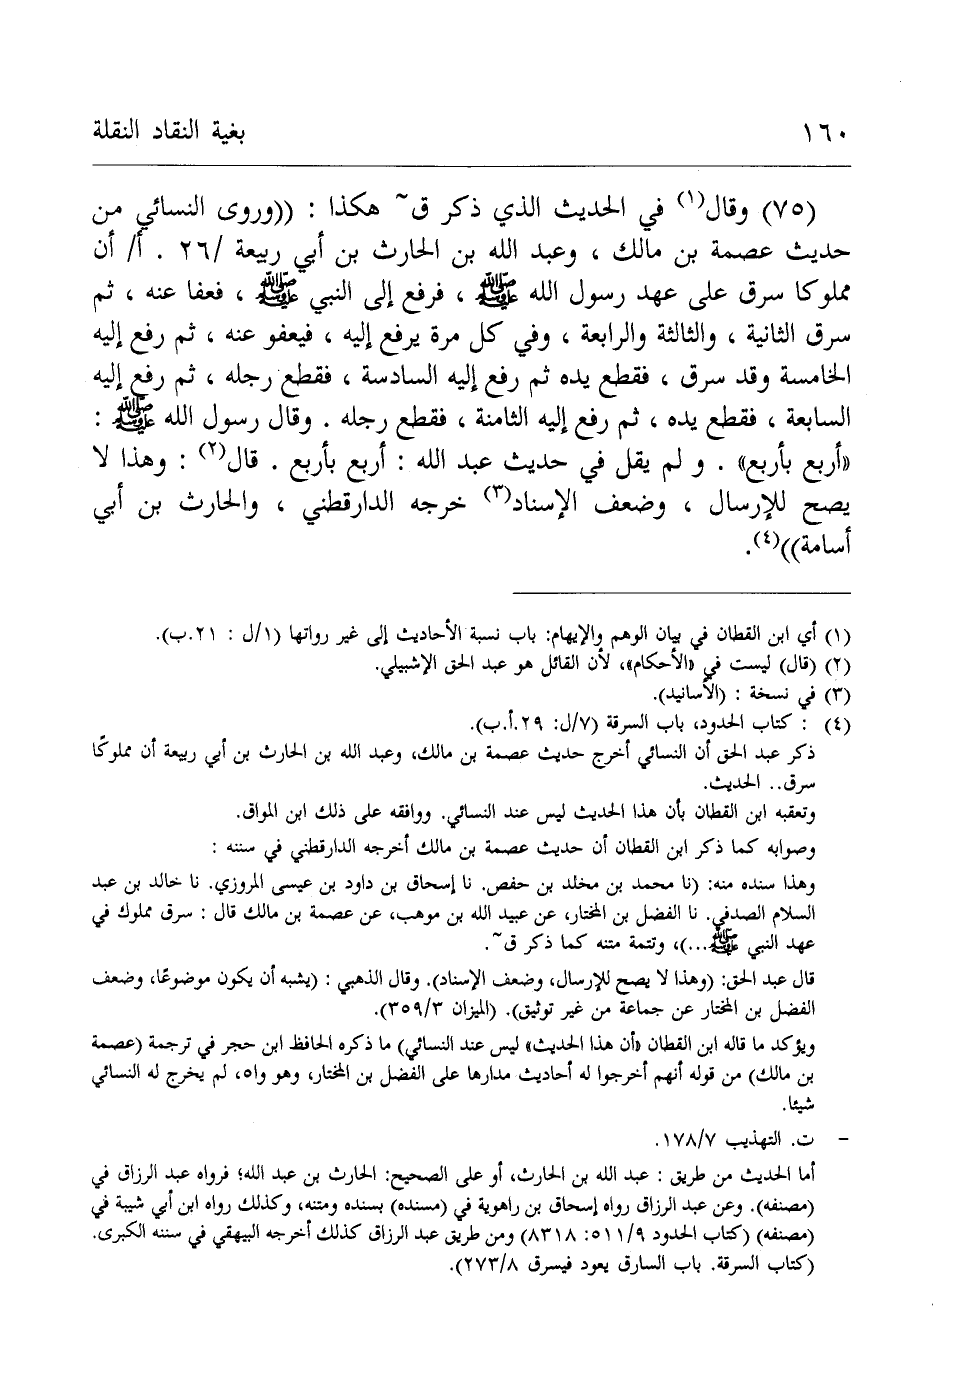 ١٦٠ بغية النقاد النقلة
(٧٥) وقال(١) في الحديث الذي ذكر ق~ هكذا : ((وروى النسائي من
حديث عصمة بن مالك ، وعبد الله بن الحارث بن أبي ربيعة /٢٦ . أ/ أن
مملوكا سرق على عهد رسول الله ﷺ ، فرفع إلى النبي ﷺ ، فعفا عنه ، ثم
سرق الثانية ، والثالثة والرابعة ، وفي كل مرة يرفع إليه ، فيعفو عنه ، ثم رفع إليه
الخامسة وقد سرق ، فقطع يده ثم رفع إليه السادسة ، فقطع رجله ، ثم رفع إليه
السابعة ، فقطع يده ، ثم رفع إليه الثامنة ، فقطع رجله . وقال رسول الله ﷺ :
«أربع بأربع» . و لم يقل في حديث عبد الله : أربع بأربع . قال(٢) : وهذا لا
يصح للإرسال ، وضعف الإسناد(٣) خرجه الدارقطني ، والحارث بن أبي
أسامة))(٤).
(١) أي ابن القطان في بيان الوهم والإيهام: باب نسبة الأحاديث إلى غير رواتها (١/ل : ٢١.ب).
(٢) (قال) ليست في «الأحكام»، لأن القائل هو عبد الحق الإشبيلي.
(٣) في نسخة : (الأسانيد).
(٤) : كتاب الحدود، باب السرقة (٧/ل: ٢٩.أ.ب).
ذكر عبد الحق أن النسائي أخرج حديث عصمة بن مالك، وعبد الله بن الحارث بن أبي ربيعة أن مملوكًا
سرق.. الحديث.
وتعقبه ابن القطان بأن هذا الحديث ليس عند النسائي. ووافقه على ذلك ابن المواق.
وصوابه كما ذكر ابن القطان أن حديث عصمة بن مالك أخرجه الدارقطني في سننه :
وهذا سنده منه: (نا محمد بن مخلد بن حفص. نا إسحاق بن داود بن عيسى المروزي. نا خالد بن عبد
السلام الصدفي. نا الفضل بن المختار، عن عبيد الله بن موهب، عن عصمة بن مالك قال : سرق مملوك في
عهد النبي ﷺ...)، وتتمة متنه كما ذكر ق~.
قال عبد الحق: (وهذا لا يصح للإرسال، وضعف الإسناد). وقال الذهبي : (يشبه أن يكون موضوعًا، وضعف
الفضل بن المختار عن جماعة من غير توثيق). (الميزان ٣٥٩/٣).
ويؤكد ما قاله ابن القطان «أن هذا الحديث» ليس عند النسائي) ما ذكره الحافظ ابن حجر في ترجمة (عصمة
بن مالك) من قوله أنهم أخرجوا له أحاديث مدارها على الفضل بن المختار، وهو واه، لم يخرج له النسائي
شيئا.
– ت. التهذيب ١٧٨/٧.
أما الحديث من طريق : عبد الله بن الحارث، أو على الصحيح: الحارث بن عبد الله؛ فرواه عبد الرزاق في
(مصنفه). وعن عبد الرزاق رواه إسحاق بن راهوية في (مسنده) بسنده ومتنه، وكذلك رواه ابن أبي شيبة في
(مصنفه) (كتاب الحدود ٥١١/٩: ٨٣١٨) ومن طريق عبد الرزاق كذلك أخرجه البيهقي في سننه الكبرى.
(كتاب السرقة. باب السارق يعود فيسرق ٢٧٣/٨).